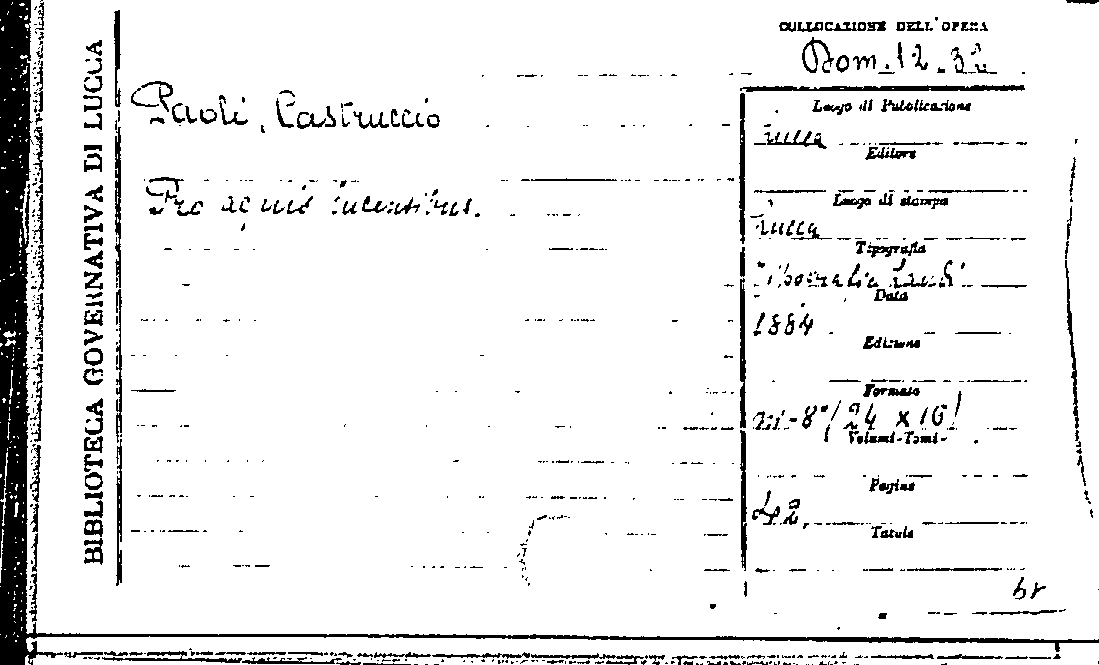 BIBLIOTECA GOVERNATIVA DI LUCCA
COLLOCAZIONE DELL'OPERA
Dom. 12. 32
Paoli, Castruccio
Pro aquis lucensibus.
Luogo di Pubblicazione
Lucca
Editore
Luogo di stampa
Lucca
Tipografia
Tipografia Landi
Data
1884
Edizione
Formato
in-8° (24 x 16)
Volumi-Tomi-
Pagine
42.
Tavole